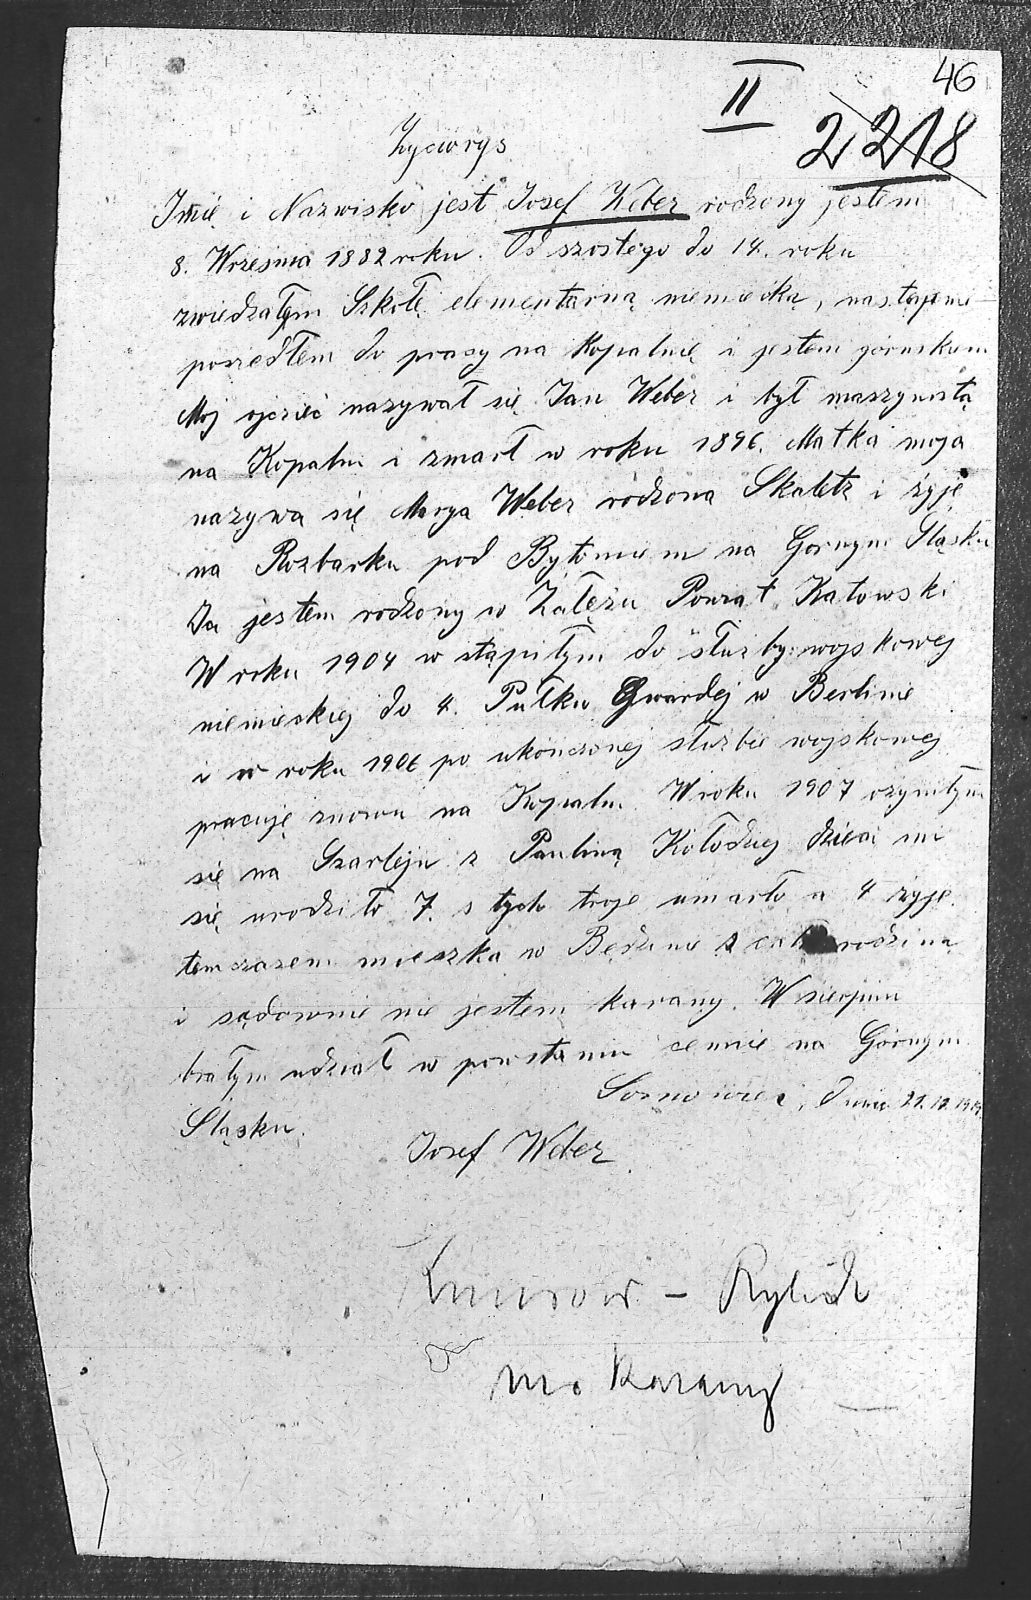 46
II
2 218
Życiorys
Imię i Nazwisko jest Josef Weber rodzony jestem
8. Wrzesnia 1882 roku. Od szostego do 14. roku
zwiedzałym Szkołę elementarną niemiecką, następnie
poszedłem do pracy na Kopalnię i jestem górnikiem
Moj ojcieć nazywał się Jan Weber i był maszynistą
na Kopalni i zmarł w roku 1896. Matka moja
nazywa się Marya Weber rodzona Skaletz i żyję
na Rozbarku pod Bytomiem na Gornym Śląsku
Ja jestem rodzony w Załężu Powiat Katowski
W roku 1904 w stąpiłym do służby wojskowej
niemieskiej do 4. Pułku Gwardej w Berlinie
i w roku 1906 po ukończonej służbie wojskowej
pracuję znowu na Kopalni. W roku 1907 ożyniłym
się na Szarleju z Pauliną Kołodziej dzieci mi
się urodziło 7. s tych troje umarło a 4 żyje.
temczasem mieszka w Będzinie z rodziną
i sądownie nie jestem karany. W sierpniu
brałym udział w powstaniu na Górnym
Śląsku.
Sosnowiec, dnia 21.10.1919
Josef Weber
Knurow - Rybnik
Karany